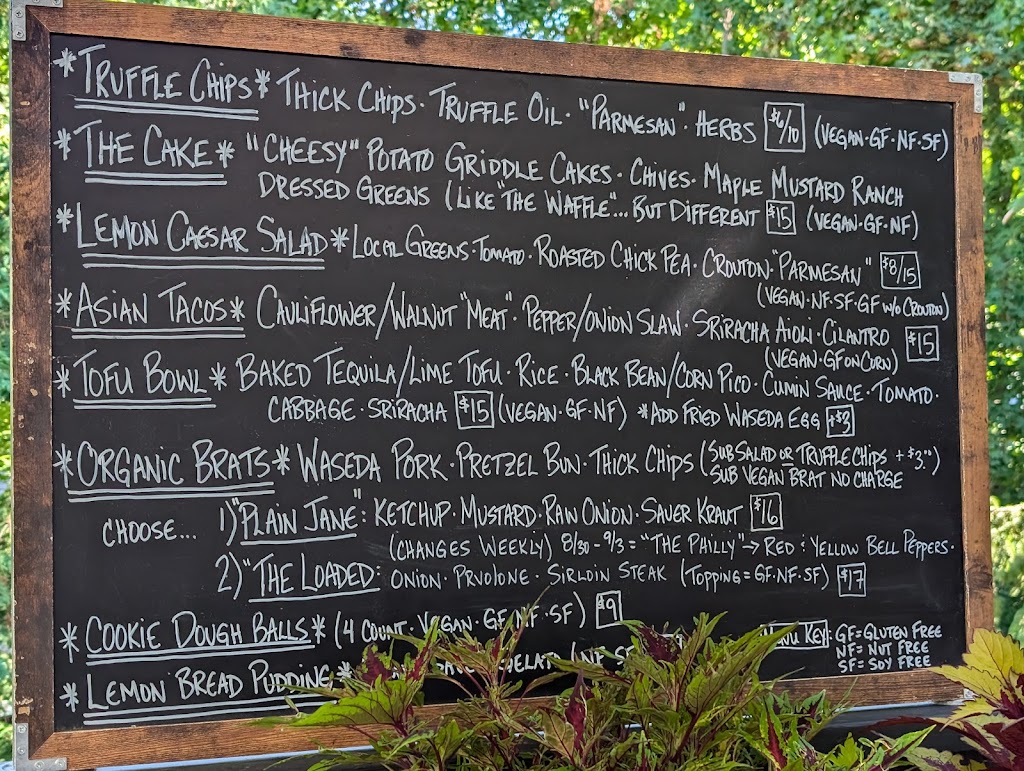 *TRUFFLE CHIPS* THICK CHIPS · TRUFFLE OIL · "PARMESAN" · HERBS $6/10 (VEGAN·GF·NF·SF)
*THE CAKE* "CHEESY" POTATO GRIDDLE CAKES · CHIVES · MAPLE MUSTARD RANCH
DRESSED GREENS (LIKE "THE WAFFLE"... BUT DIFFERENT $15 (VEGAN·GF·NF)
*LEMON CAESAR SALAD* LOCAL GREENS · TOMATO · ROASTED CHICK PEA · CROUTON · "PARMESAN" $8/15
(VEGAN·NF·SF·GF W/O CROUTON)
*ASIAN TACOS* CAULIFLOWER/WALNUT "MEAT" · PEPPER/ONION SLAW · SRIRACHA AIOLI · CILANTRO $15
(VEGAN·GF ON CORN)
*TOFU BOWL* BAKED TEQUILA/LIME TOFU · RICE · BLACK BEAN/CORN PICO · CUMIN SAUCE · TOMATO ·
CABBAGE · SRIRACHA $15 (VEGAN·GF·NF) *ADD FRIED WASEDA EGG +$3
*ORGANIC BRATS* WASEDA PORK · PRETZEL BUN · THICK CHIPS (SUB SALAD OR TRUFFLE CHIPS + $3.00)
SUB VEGAN BRAT NO CHARGE
CHOOSE... 1) "PLAIN JANE": KETCHUP · MUSTARD · RAW ONION · SAUER KRAUT $16
(CHANGES WEEKLY) 8/30 - 9/3 = "THE PHILLY" → RED : YELLOW BELL PEPPERS ·
2) "THE LOADED: ONION · PRVOLONE · SIRLOIN STEAK (TOPPING = GF·NF·SF) $17
*COOKIE DOUGH BALLS* (4 COUNT · VEGAN · GF · NF · SF) $9
*LEMON BREAD PUDDING* (NF
KEY: GF = GLUTEN FREE
NF = NUT FREE
SF = SOY FREE